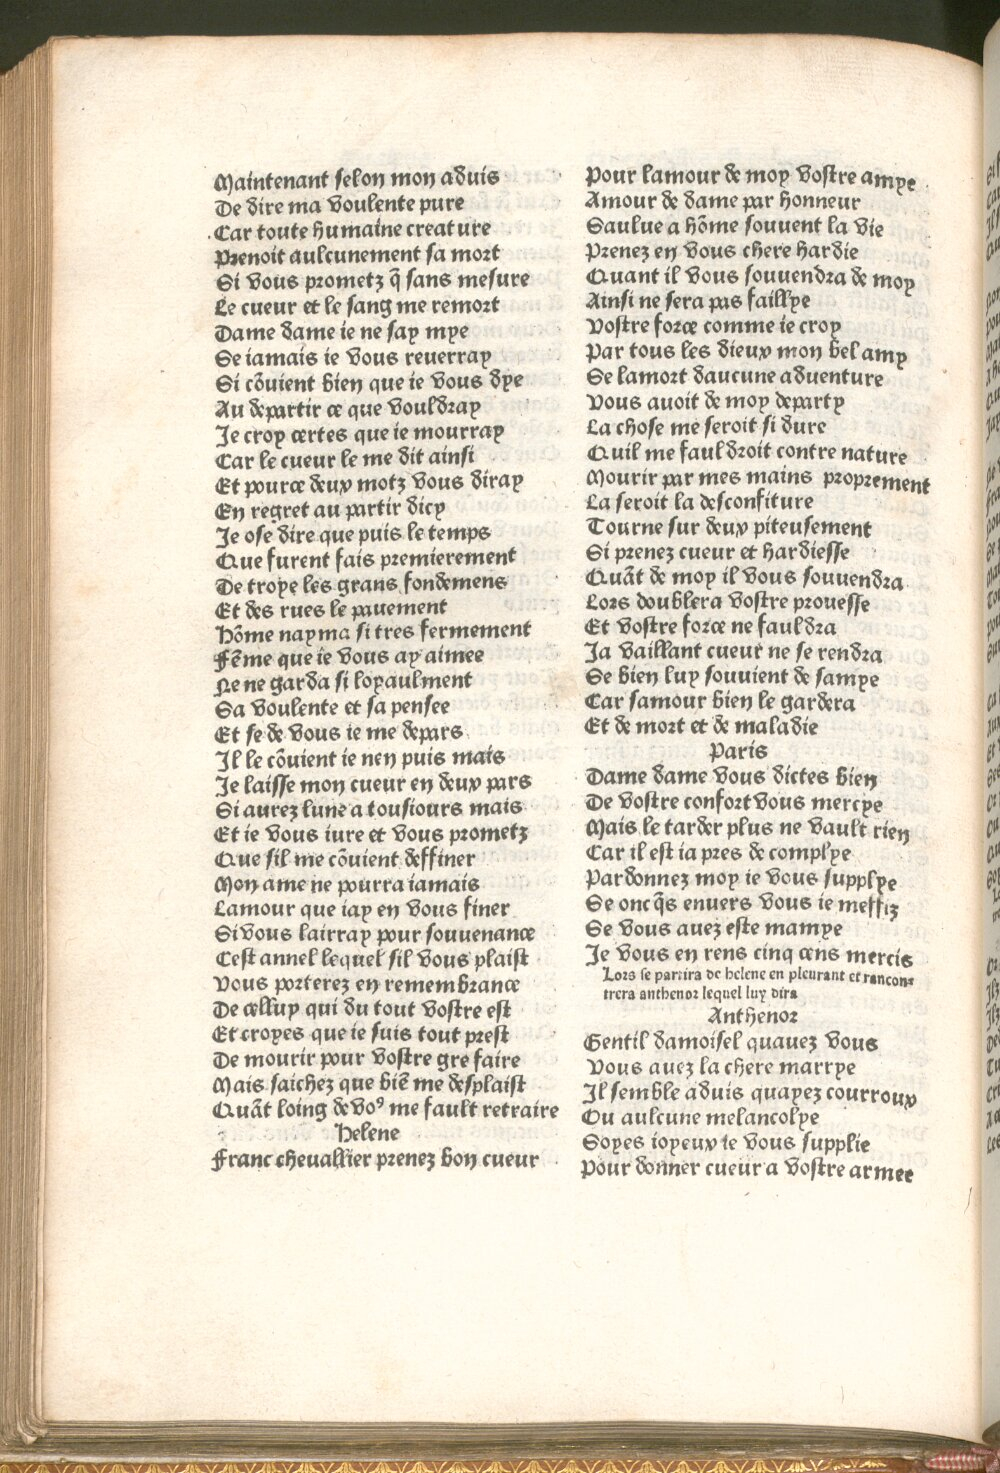 Maintenant selon mon aduis
De dire ma voulente pure
Car toute humaine creature
Prenoit aulcunement sa mort
Si vous prometz q̃ sans mesure
Le cueur et le sang me remort
Dame dame ie ne say mye
Se iamais ie vous reuerray
Si cõuient bien que ie vous dye
Au departir ce que vouldray
Je croy certes que ie mourray
Car le cueur le me dit ainsi
Et pource deux motz vous diray
En regret au partir dicy
Je ose dire que puis le temps
Que furent fais premierement
De troye les grans fondemens
Et des rues le pauement
Hõme nayma si tres fermement
Fẽme que ie vous ay aimee
Ne ne garda si loyaulment
Sa voulente et sa pensee
Et se de vous ie me depars
Il le cõuient ie nen puis mais
Je laisse mon cueur en deux pars
Si aurez lune a tousiours mais
Et ie vous iure et vous prometz
Que sil me cõuient deffiner
Mon ame ne pourra iamais
Lamour que iay en vous finer
Si vous lairray pour souuenance
Cest annel lequel sil vous plaist
Vous porterez en remembrance
De celluy qui du tout vostre est
Et croyes que ie suis tout prest
De mourir pour vostre gre faire
Mais saichez que biẽ me desplaist
Quãt loing de voꝰ me fault retraire
Helene
Franc chevallier prenez bon cueur
Pour lamour de moy vostre amye
Amour de dame par honneur
Saulue a hõme souuent la vie
Prenez en vous chere hardie
Quant il vous souuendra de moy
Ainsi ne sera pas faillye
Vostre force comme ie croy
Par tous les dieux mon bel amy
Se lamort daucune aduenture
Vous auoit de moy departy
La chose me seroit si dure
Quil me fauldroit contre nature
Mourir par mes mains proprement
La seroit la desconfiture
Tourne sur deux piteusement
Si prenez cueur et hardiesse
Quãt de moy il vous souuendra
Lors doublera vostre prouesse
Et vostre force ne fauldra
Ja vaillant cueur ne se rendra
Se bien luy souuient de samye
Car samour bien le gardera
Et de mort et de maladie
Paris
Dame dame vous dictes bien
De vostre confort vous mercye
Mais le tarder plus ne vault rien
Car il est ia pres de complye
Pardonnez moy ie vous supplye
Se oncq̃s enuers vous ie meffiz
Se vous auez este mamye
Je vous en rens cinq cens mercis
Lors se partira de helene en pleurant et rancon-
trera anthenor lequel luy dira
Anthenor
Gentil damoisel quauez vous
Vous auez la chere marrye
Il semble aduis quayez courroux
Ou aulcune melancolye
Soyes ioyeux ie vous supplie
Pour donner cueur a vostre armee